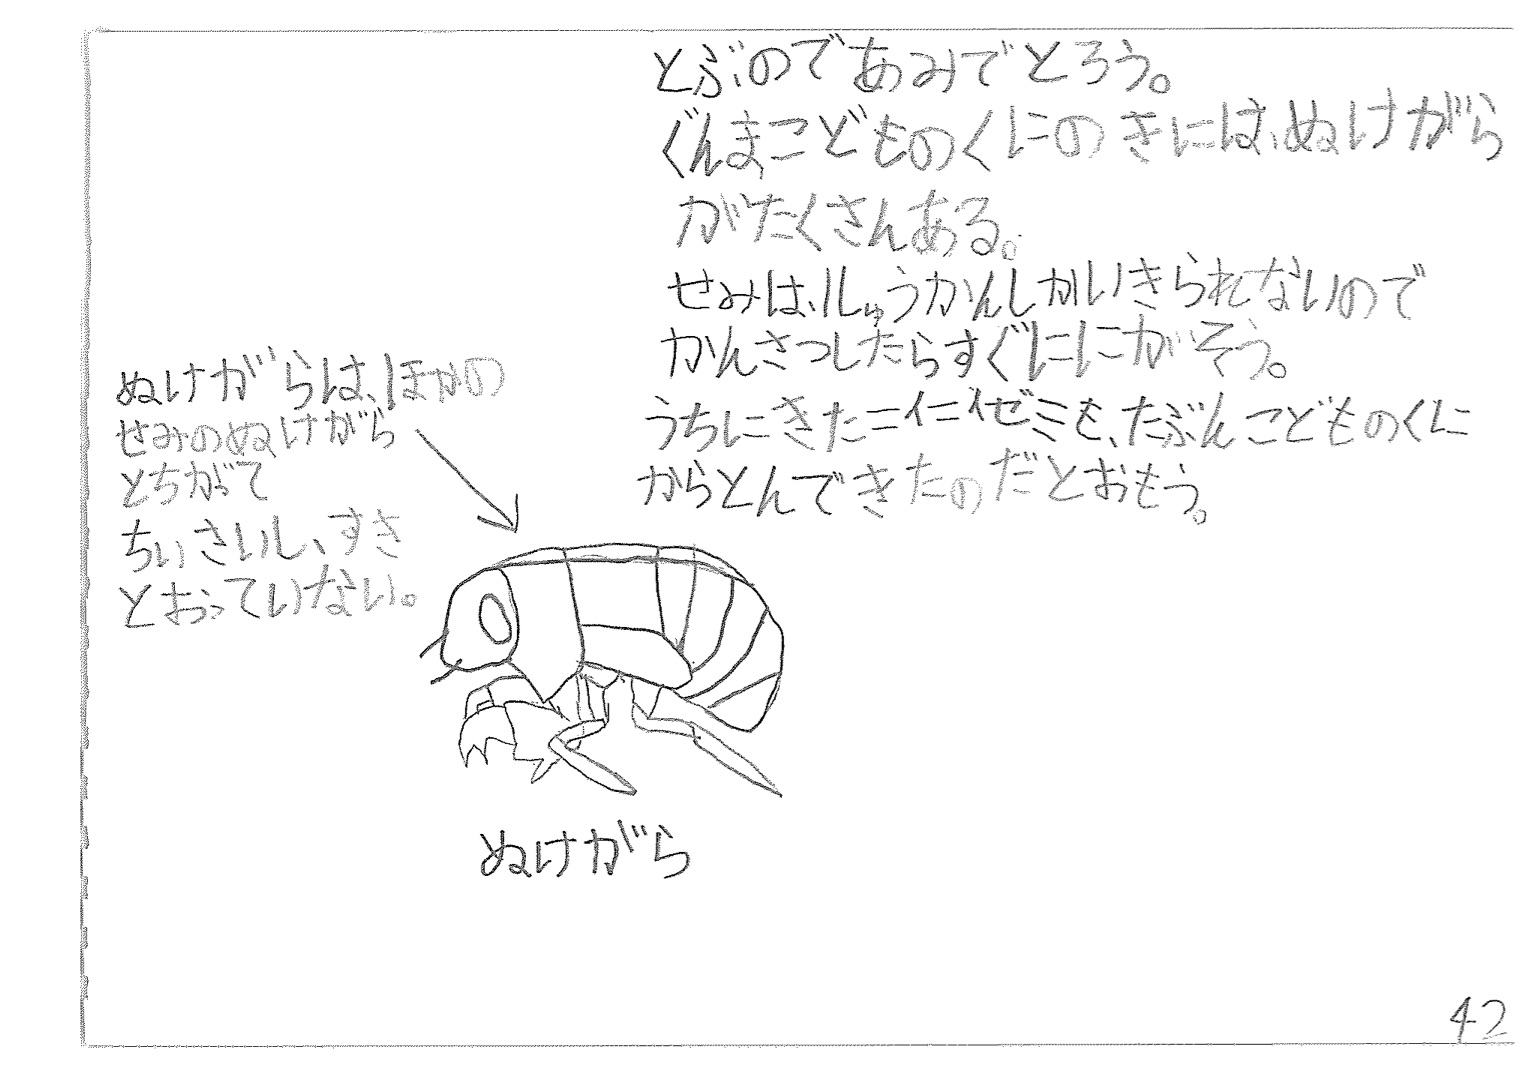 とぶのであみでとろう。
ぐんまこどものくにのきには、ぬけがら
がたくさんある。
せみは、1しゅうかんしかいきられないので
かんさつしたらすぐににがそう。
うちにきたニイニイゼミも、たぶんこどものくに
からとんできたのだとおもう。
ぬけがらは、ほかの
せみのぬけがら
とちがって
ちいさいし、すき
とおっていない。
ぬけがら
42